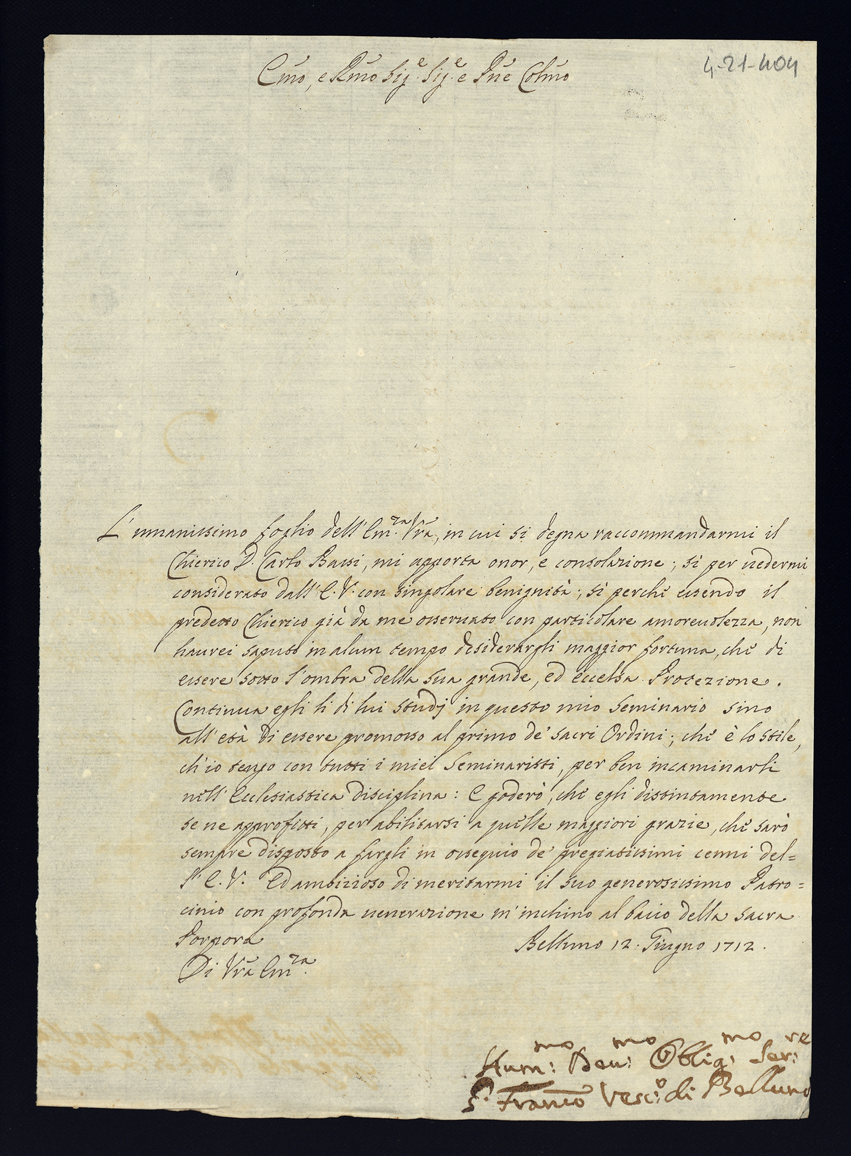 4-21-404
Em̃o, e Rm̃o Sig.e Sig.e e Pñe Colm̃o
L'umanissimo foglio dell'Em.za Vr̃a, in cui si degna raccommandarmi il
Chierico D. Carlo Bassi, mi apporta onor, e consolazione; sì per vedermi
considerato dall'E.V. con singolare benignità; sì perchè essendo il
predetto Chierico già da me osservato con particolare amorevolezza, non
haurei saputo in alcun tempo desiderargli maggior fortuna, che di
essere sotto l'ombra della sua grande, ed eccelsa Protezione.
Continua egli li di lui studj in questo mio Seminario sino
all'età di essere promosso al primo de' sacri Ordini; che è lo stile,
ch'io tengo con tutti i miei Seminaristi, per ben incaminarli
nell'Ecclesiastica disciplina: E goderò, che egli distintamente
se ne approfitti, per abilitarsi a quelle maggiori grazie, che sarò
sempre disposto a fargli in ossequio de' pregiatissimi cenni del=
l'E.V. Ed ambizioso di meritarmi il suo generosissimo Patro=
cinio con profonda venerazione m'inchino al bacio della sacra
Porpora
Belluno 12. Giugno 1712.
Di Vr̃a Em.za
Hum:mo Deu:mo Oblig:mo Ser:re
G. Franco Vesc.o di Belluno